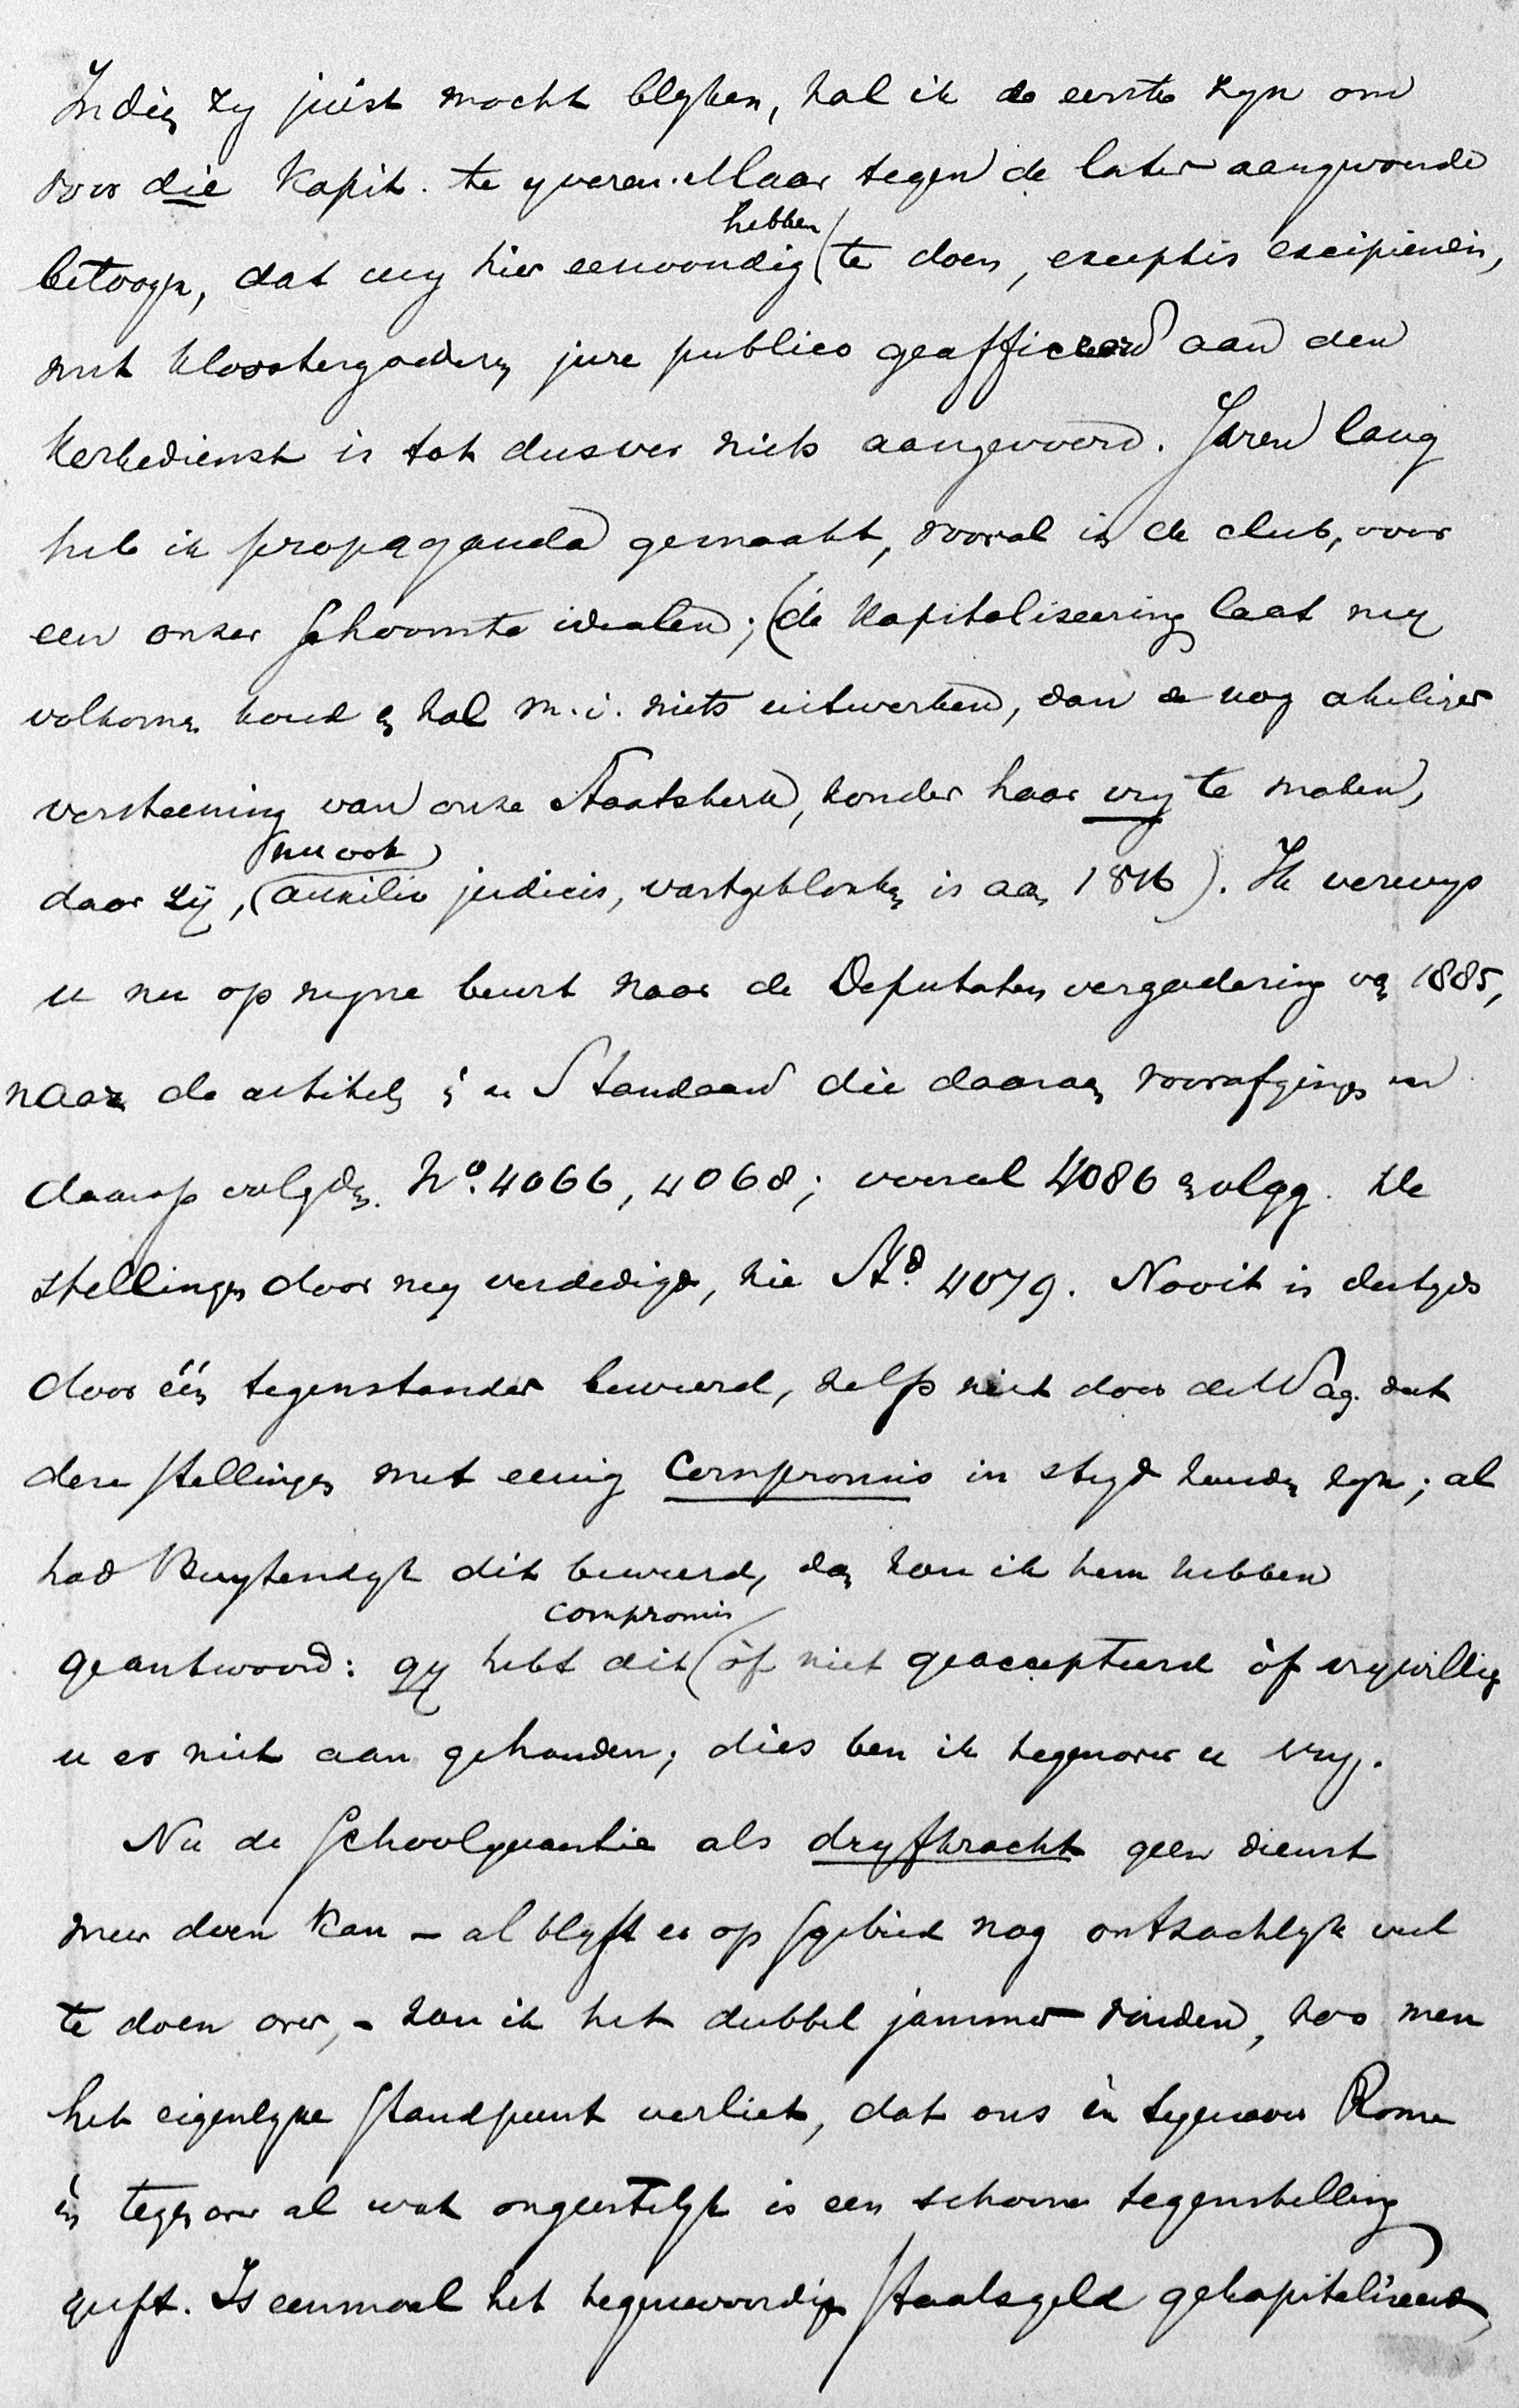 Indien zy juist mocht blyken, zal ik de eerste zyn om
voor die Kapit. te yveren. Maar tegen de later aangevoerde
betoogen, dat wy hier eenvoudig hebben te doen, exceptis excipiendis,
met kloostergoederen jure publico geaffecteerd aan den
Kerkedienst is tot dusver niets aangevoerd. Jaren lang
heb ik propaganda gemaakt, vooral in de club, voor
een onzer schoonste idealen; (de Kapitaliseering laat my
volkomen koud en zal m.i. niets uitwerken, dan de nog akeliger
versteening van onze Staatskerk, zonder haar vry te maken,
daar zij, (nu ook) auxilio judicis, vastgeklonken is aan 1816). Ik verwys
u nu op myne beurt naar de Deputaten vergadering van 1885,
naar de artikelen in de Standaard die daaraan voorafgingen en
daarop volgden. No. 4066, 4068; vooral 4086 en volgg. De
stellingen door my verdedigd, zie Std. 4079. Nooit is destyds
door één tegenstander beweerd, zelfs niet door de Wag. dat
deze stellingen met eenig Compromis in stryd zouden zyn; al
had Buytendyk dit beweerd, dan zou ik hem hebben
geantwoord: gy hebt dit compromis òf niet geaccepteerd òf vrywillig
u er niet aan gehouden; dies ben ik tegenover u vry.
Nu de Schoolquaestie als dryfkracht geen dienst
meer doen kan – al blyft er op Sgebied nog ontzachlyk veel
te doen over, – zou ik het dubbel jammer vinden, zoo men
het eigenlyke standpunt verliet, dat ons èn tegenover Rome
èn tegenover al wat ongeestelyk is een schoone tegenstelling
geeft. Is eenmaal het tegenwoordige Staatsgeld gekapitaliseerd,